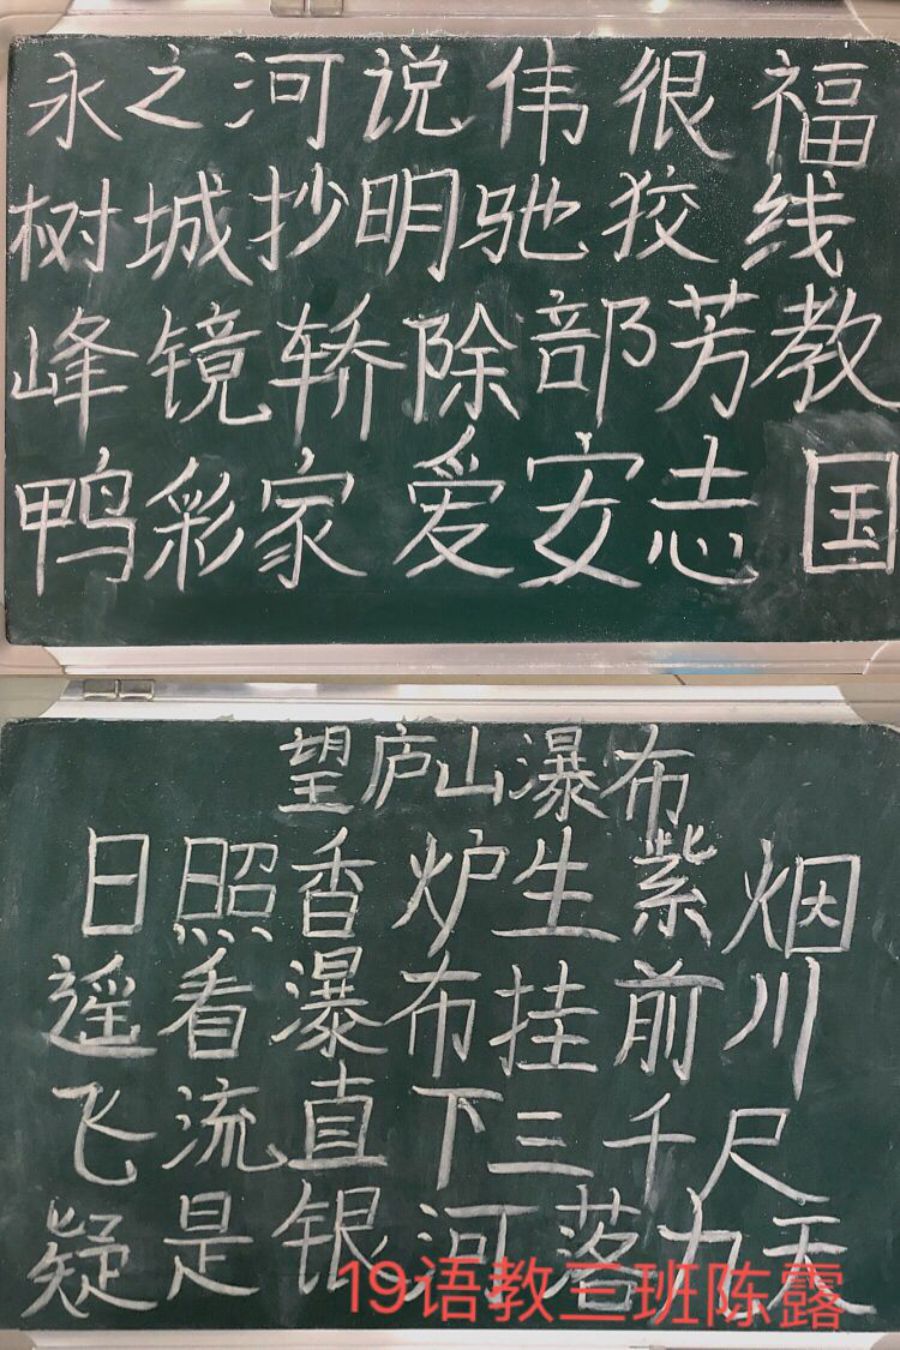 永之河说伟很福
树城抄明驰狡线
峰镜轿除部芳教
鸭彩家爱安志国
望庐山瀑布
日照香炉生紫烟
遥看瀑布挂前川
飞流直下三千尺
疑是银河落九天
19语教三班陈露